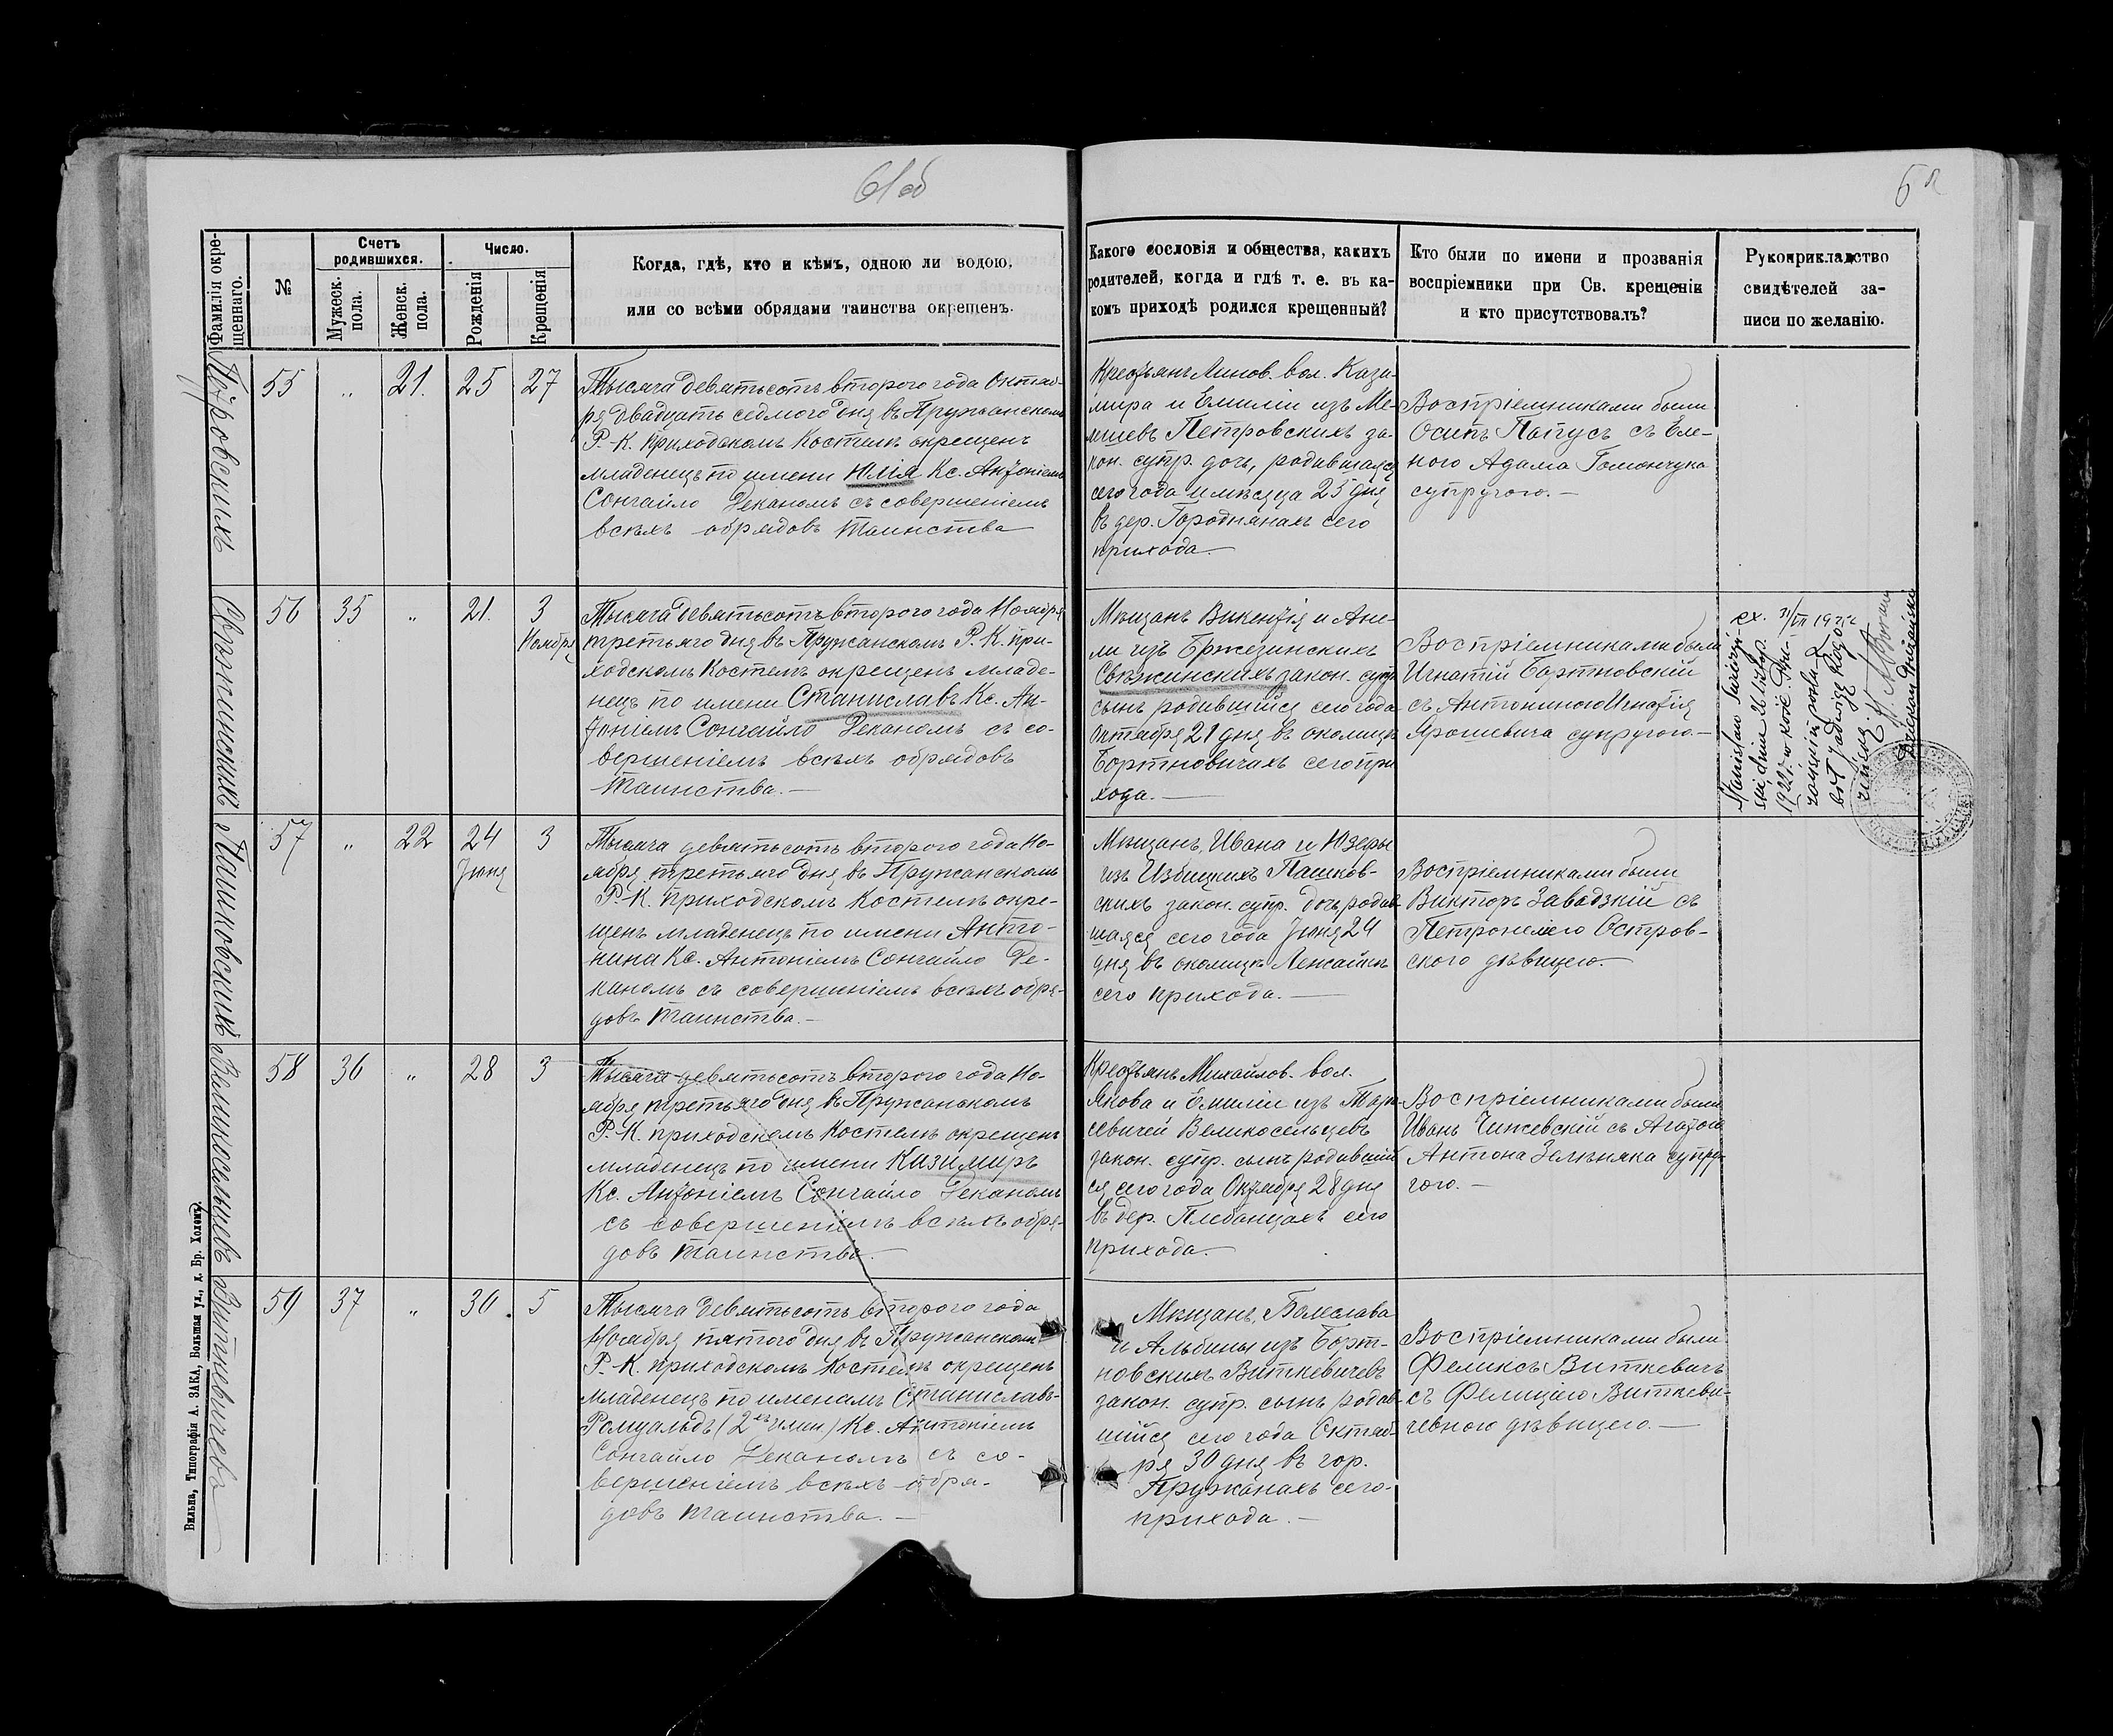 61об
Фамилія окре-
щеннаго.
№
Счетъ
родившихся.
Мужеск.
пола.
Женск.
пола.
Число.
Рожденія
Крещенія
Когда, гдѣ, кто и кѣмъ, одною ли водою,
или со всѣми обрядами таинства окрещенъ.
Какого сословія и общества, какихъ
родителей, когда и гдѣ т. е. въ ка-
комъ приходѣ родился крещенный?
Кто были по имени и прозванія
воспріемники при Св. крещеніи
и кто присутствовалъ?
Рукоприкладство
свидѣтелей за-
писи по желанію.
Петровскихъ
55
„
21.
25
27
Тысяча девятьсотъ второго года Октяб-
ря двадцать седьмого дня въ Пружанскомъ
Р.-К. приходскомъ Костелѣ окрещенъ
младенецъ по имени Юлія Кс. Анѳоніемъ
Сончайло Деканомъ съ совершеніемъ
всѣхъ обрядовъ таинства
Крестьянъ Линов. вол. Кази-
мира и Емиліи изъ
Петровскихъ за-
кон. супр. дочь, родившаяся
сего года и мѣсяца 25 дня
въ дер. Городнянахъ сего
прихода.—
Воспріемниками были
Осипъ Папусъ съ Еле-
ною Адама Гомончука
супругою.—
Свѣжинскихъ
56
35
„
21.
3
Ноября
Тысяча девятьсотъ второго года Ноября
третьяго дня въ Пружанскомъ Р. К. при-
ходскомъ Костелѣ окрещенъ младе-
нецъ по имени Станиславъ Кс. Ан-
ѳоніемъ Сончайло Деканомъ съ со-
вершеніемъ всѣхъ обрядовъ
таинства.—
Мѣщанъ Викентія и Ане-
ли изъ Бржезинскихъ
Свѣжинскихъ закон. супр.
сынъ родившійся сего года
Октября 21 дня въ околицѣ
Бортновичахъ сего при
хода.—
Воспріемниками были
Игнатій Бортновскій
съ Антониною Игнатія
Ярошевича супругою.—
Пашковскихъ
57
„
22
24
Іюня
3
Тысяча девятьсотъ второго года Но-
ября третьяго дня въ Пружанскомъ
Р.-К. приходскомъ Костелѣ окре-
щенъ младенецъ по имени Анто-
нина Кс. Антоніемъ Сончайло Де-
каномъ съ совершеніемъ всѣхъ обря-
довъ таинства.—
Мѣщанъ, Ивана и Юзефы
изъ Избицкихъ Пашков-
скихъ закон. супр. дочь родив-
шаяся сего года Іюня 24
дня въ околицѣ Ленсайкѣ
сего прихода.—
Воспріемниками были
Викторъ Завадзкій съ
Петронелею Остров-
ского дѣвицею.—
Великосельцевъ
58
36
„
28
3
Тысяча девятьсотъ второго года Но-
ября третьяго дня въ Пружанскомъ
Р.-К. приходскомъ Костелѣ окрещенъ
младенецъ по имени Казимиръ
Кс. Анѳоніемъ Сончайло Деканомъ
съ совершеніемъ всѣхъ обря-
довъ таинства.—
Крестьянъ Михайлов. вол.
Якова и Емиліи изъ Тара-
севичей Великосельцевъ
закон. супр. сынъ родившій
ся сего года Октября 28 дня
въ дер. Плебанцахъ сего
прихода.—
Воспріемниками были
Иванъ Чижевскій съ Агатою
Антона Зельняка супру-
гою.—
Виткевичевъ
59
37
„
30.
5
Тысяча девятьсотъ второго года
Ноября пятого дня въ Пружанскомъ
Р.-К. приходскомъ Костелѣ окрещенъ
младенецъ по именамъ Станиславъ-
Ромуальдъ (2 имя) Кс. Антоніемъ
Сончайло Деканомъ съ со-
вершеніемъ всѣхъ обря-
довъ таинства.—
Мѣщанъ, Болеслава
и Альбины изъ Борт-
новскихъ Виткевичевъ
закон. супр. сынъ родив-
шійся сего года Октяб-
ря 30 дня въ гор.
Пружанахъ сего
прихода.—
Воспріемниками были
Феликсъ Виткевичъ
съ Фелиціею Виткеви-
чевною дѣвицею.—
Вильна, Типографія А. ЗАКА, Большая ул., д. Бр. Холемъ.